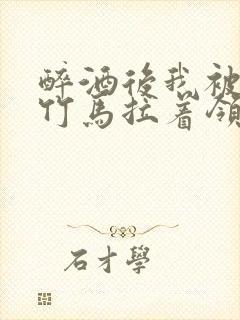 醉酒後我被
竹馬拉着領
石才學